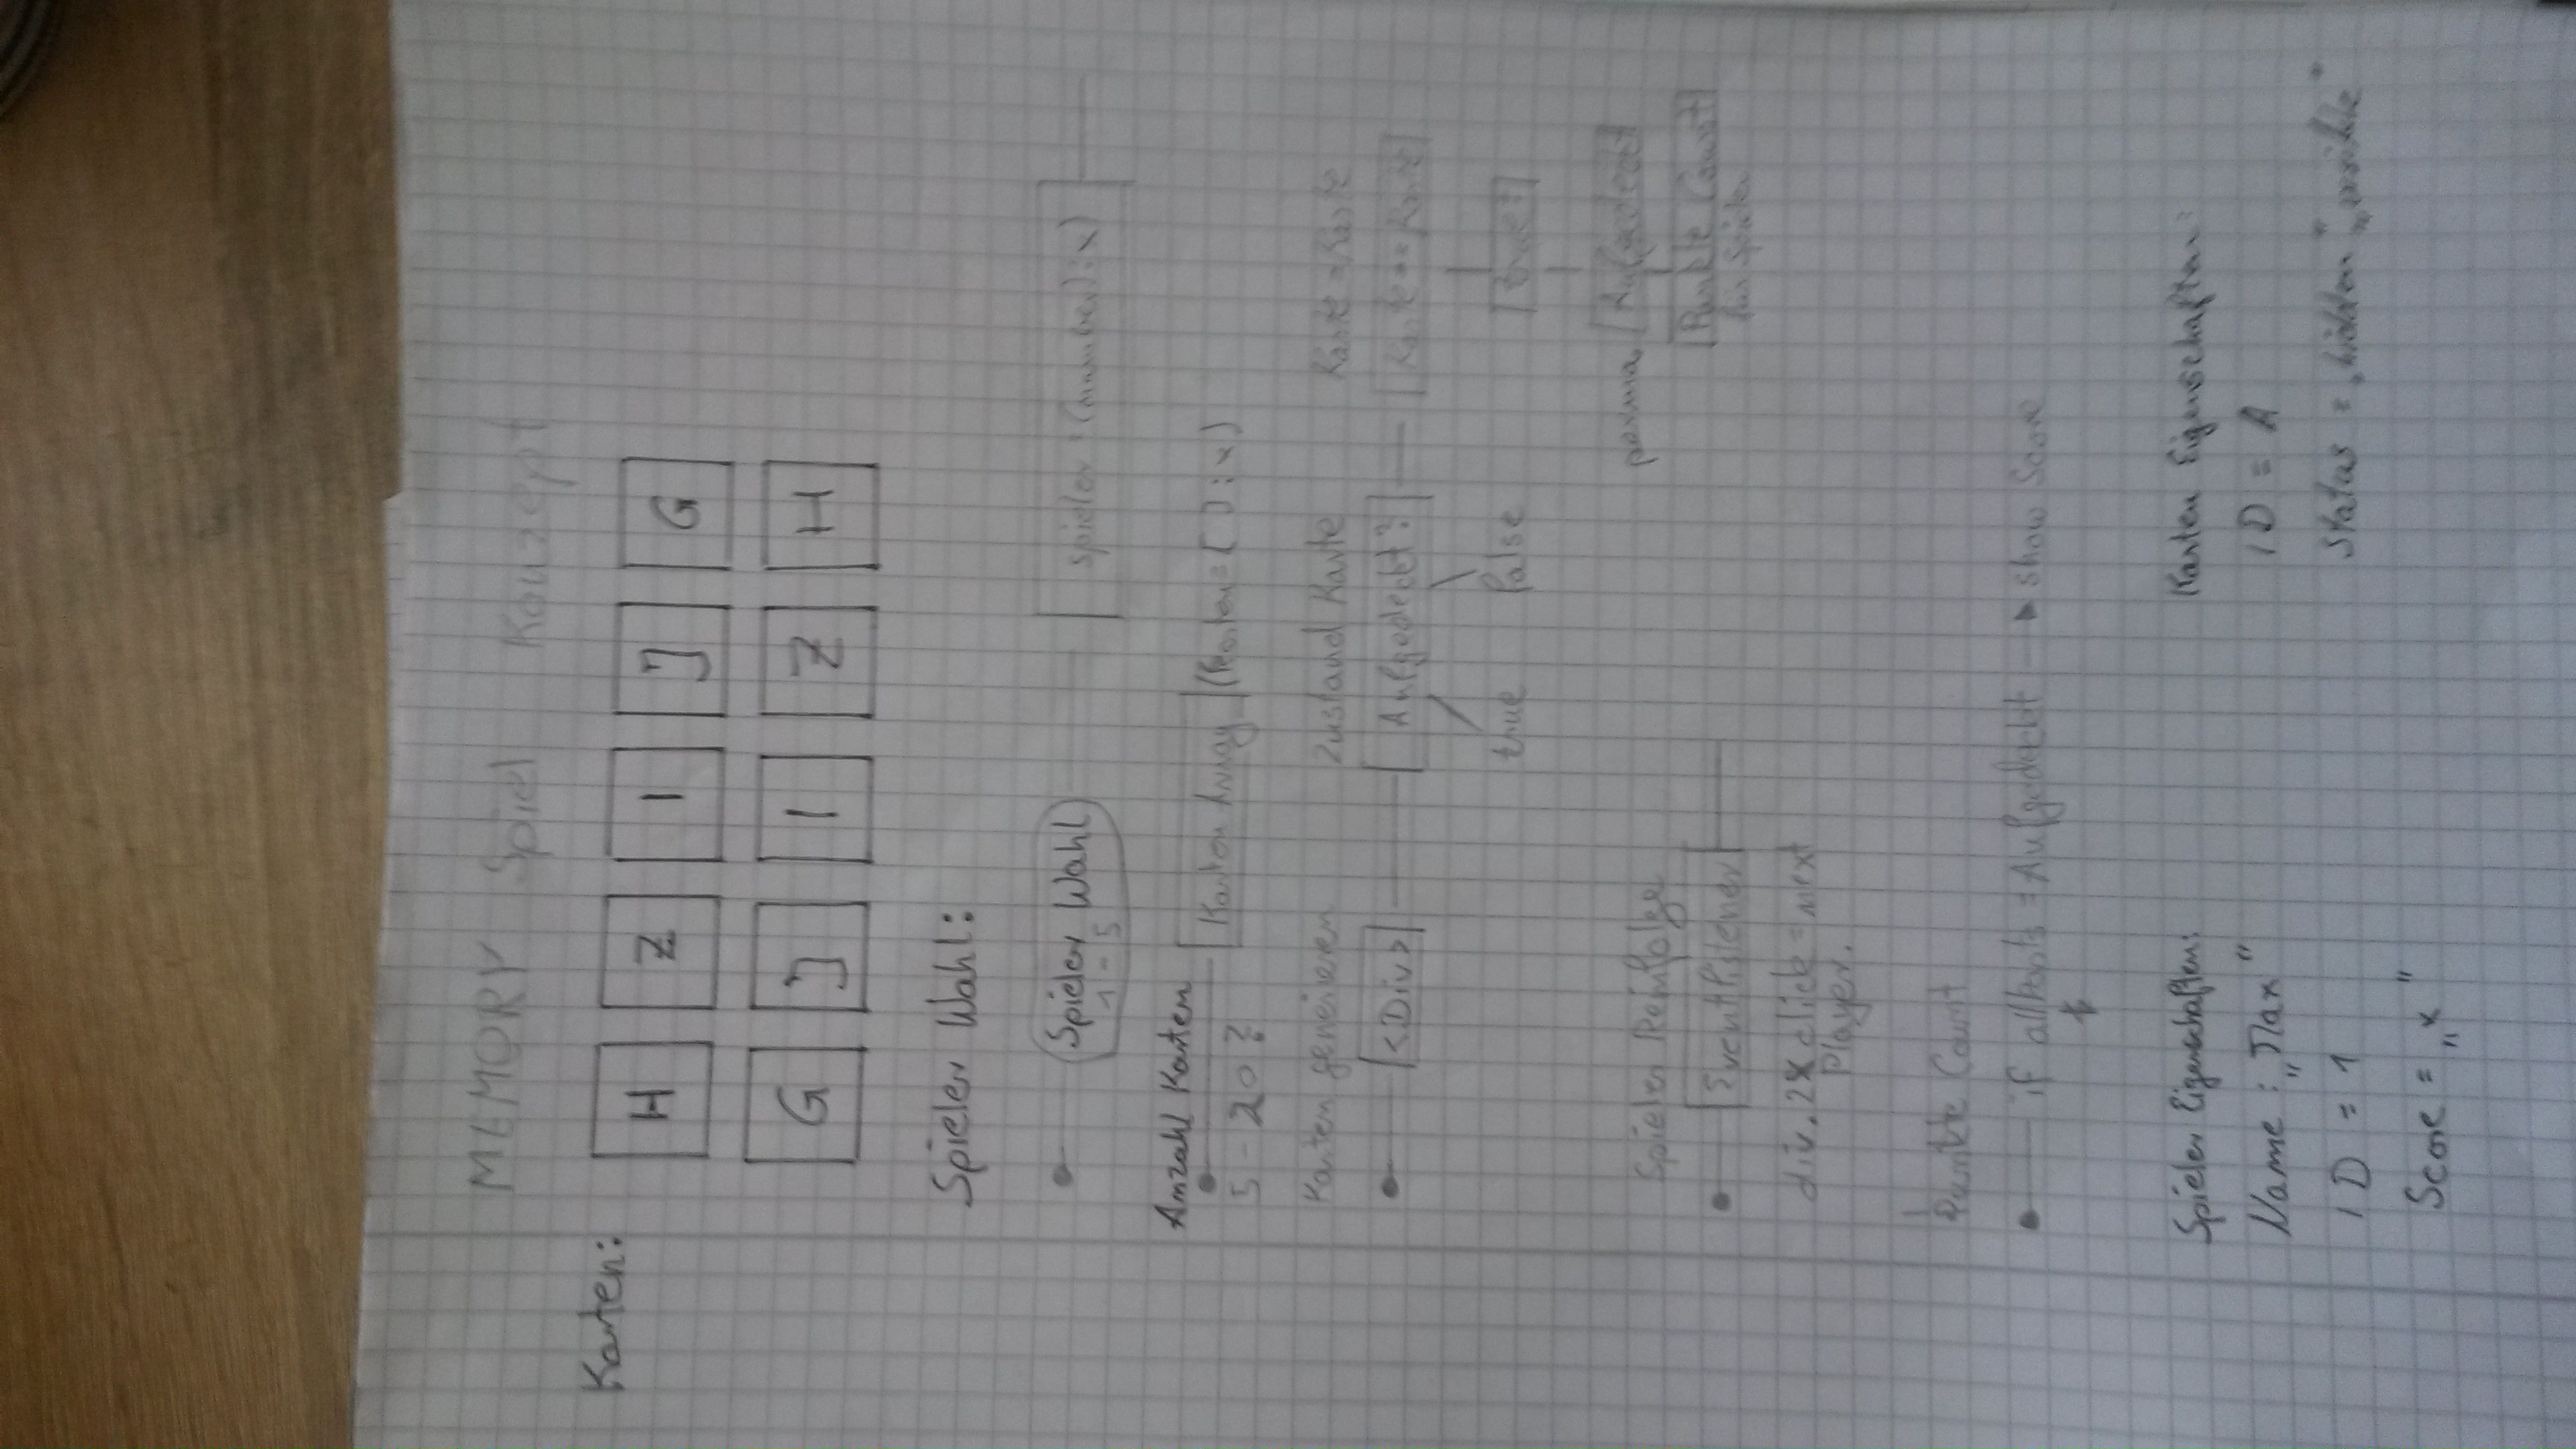 MEMORY Spiel Konzept
Karten:
H Z I J G
G J I Z H
Spieler Wahl:
Spieler Wahl
1 - 5
spieler = (number) : x)
Anzahl Karten
5 - 20 ?
Karten Array (Karten = [ ] ; x)
Karten generieren
<Div>
Zustand Karte
Aufgedeckt?
true false
Karte = Karte
Karte == Karte
true?
perma. Aufgedeckt
Punkte Count
für Spieler
Spieler Reinfolge
Eventlistener
div. 2x click = next
Player.
Punkte Count
if all = Aufgedeckt show Score
Spieler Eigenschaften:
Name : „Max“
ID = 1
Score = „x“
Karten Eigenschaften:
ID = A
Status = „hidden“